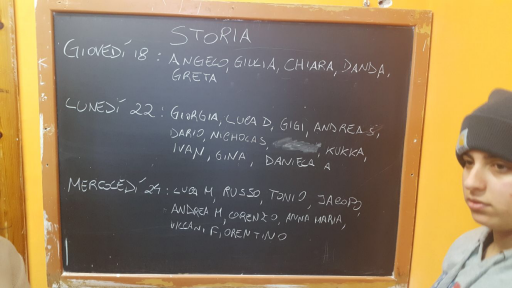 STORIA
GIOVEDÌ 18: ANGELO, GIULIA, CHIARA, DANDA,
GRETA
LUNEDÌ 22: GIORGIA, LUCA D, GIGI, ANDREA S,
DARIO, NICHOLAS, KUKKA,
IVAN, GINA, DANIELA A
MERCOLEDÌ 24: LUCA M, RUSSO, TONIO, JACOPO,
ANDREA M, LORENZO, ANNA MARIA,
FIORENTINO